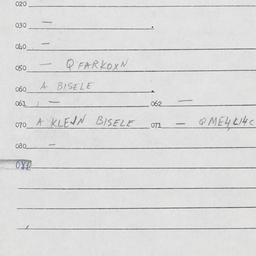 020
030 —
040 —
050 — Q FARKOXN
060 A BISELE
061 — 062 —
070 A KLEIN BISELE 071 —
080 —